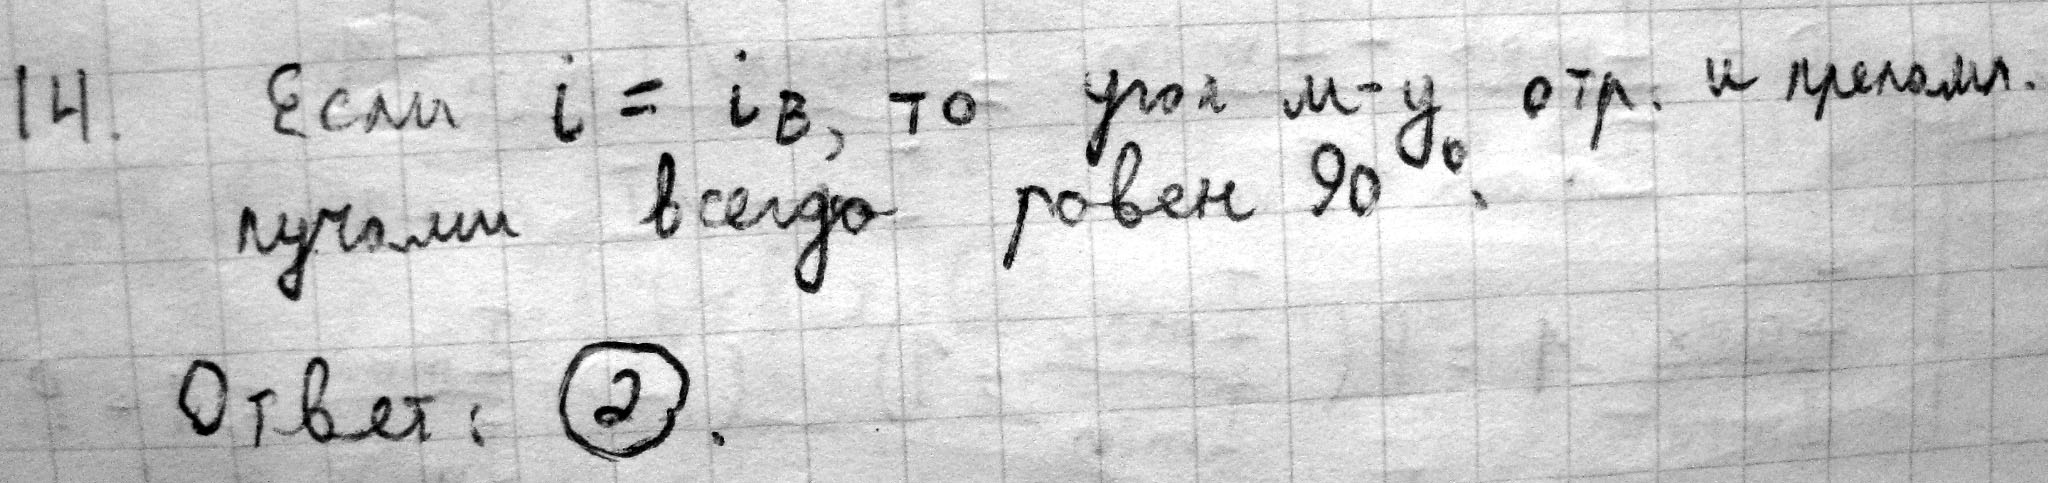 14. Если i = iв, то угол м-у отр. и преломл.
лучами всегда равен 90°.
Ответ: 2.